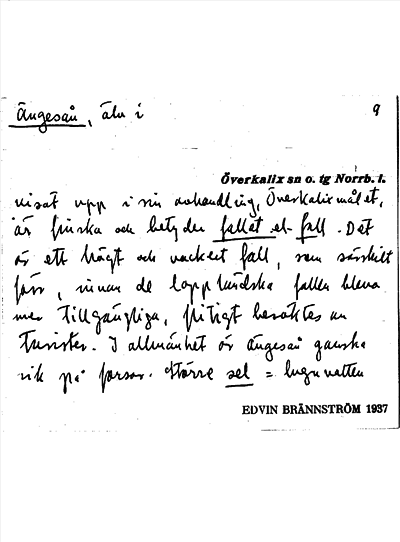 Ängesån, älv i 9
Överkalix sn o. tg Norrb. l.
visat upp i sin avhandling, Överkalixmålet,
är finska och betyder fallet el. fall. Det
är ett högt och vackert fall, som särskilt
förr, innan de lappländska fallen bleva
mer tillgängliga, flitigt besöktes av
turister. I allmänhet är Ängesån ganska
rik på forsar. Större sel = lugnvatten
EDVIN BRÄNNSTRÖM 1937